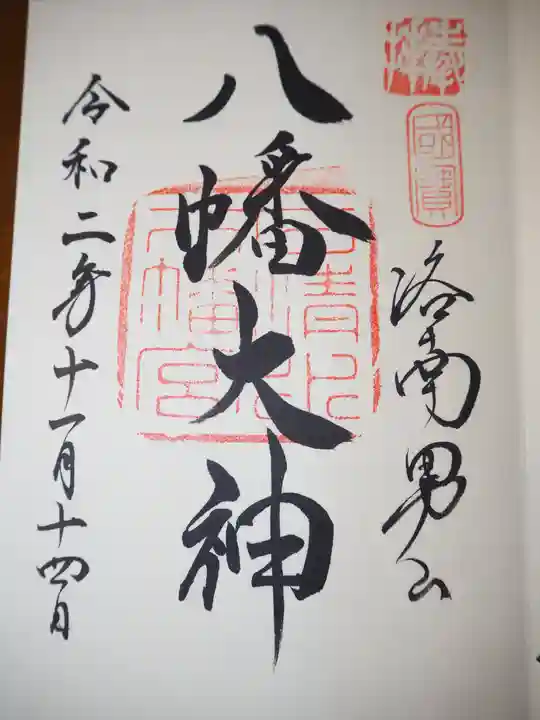 國寶
洛南男山
八幡大神
石清水
八幡宮
令和二年十一月十四日